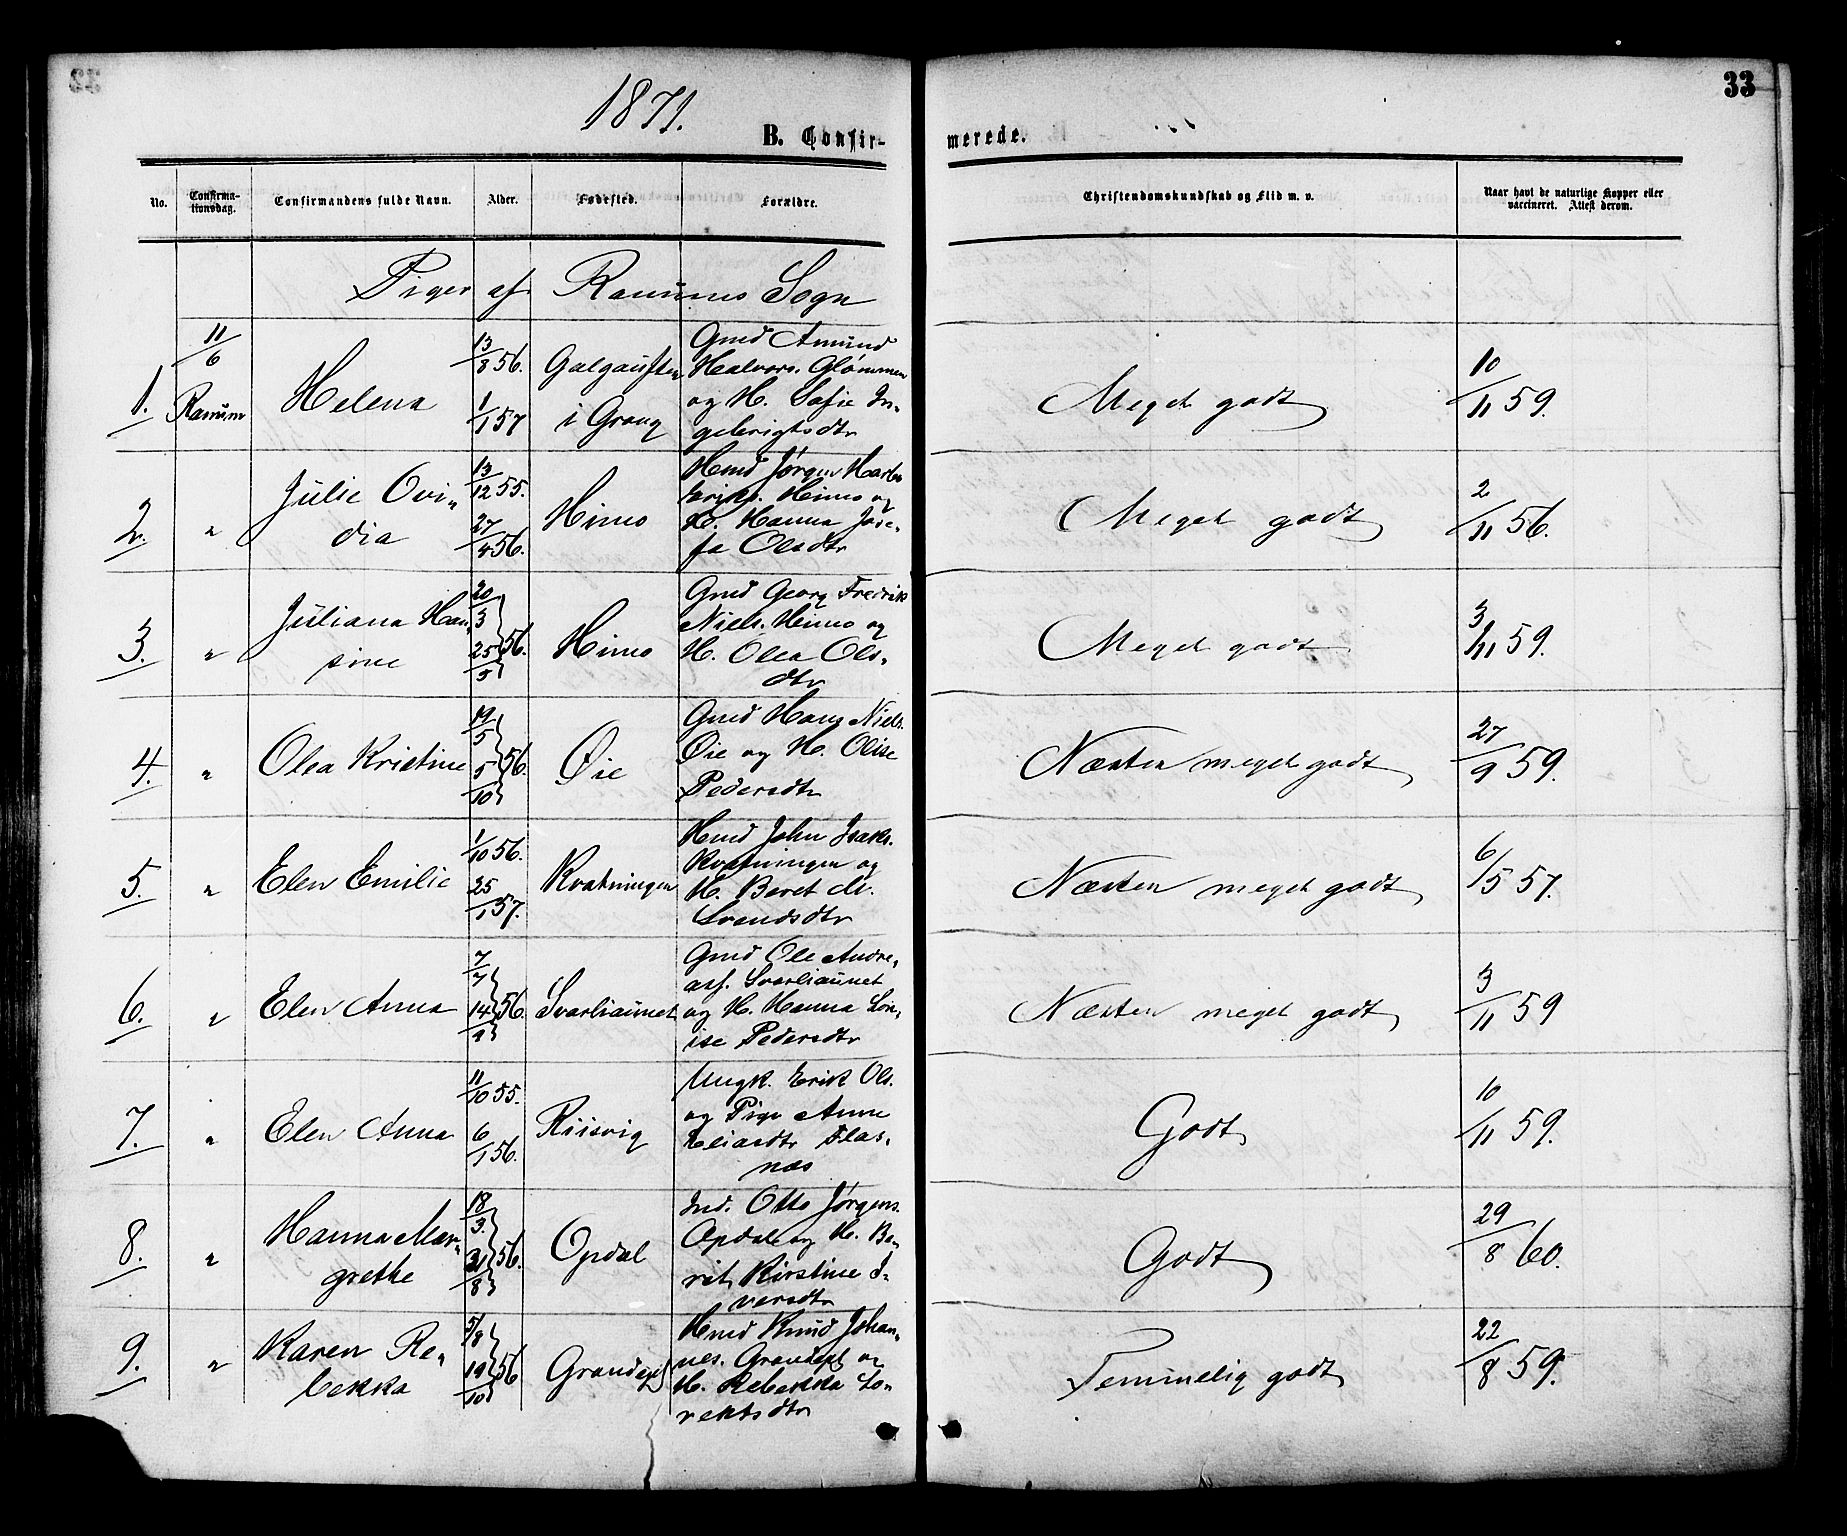 33
1871.
B. Confir-
merede.
No.
Confirma-
tionsdag.
Confirmandens fulde Navn.
Alder.
Fødested.
Forældre.
Christendomskundskab og Flid m. v.
Naar havt de naturlige Kopper eller
vaccineret. Attest derom.
Piger af Ranums Sogn
1.
11/6
Ranum
Helena
13/8 56.
1/1 57
i Grong
Gmd Amund
Halvors. Glømmen
og H. Sofie In-
gebrigtsdtr
Meget godt
10/11 59.
2.
"
Julie Ovi-
dia
13/12 55.
27/4 56.
Himo
Hmd Jørgen
Himo og
H. Hanna Jose-
fa Olsdtr
Meget godt
2/11 56.
3.
"
Juliana Han-
sine
20/3
25/5 56.
Himo
Gmd Georg Fredrik
Niels. Himo og
H. Olea Ols-
dtr
Meget godt
3/11 59.
4.
"
Olea Kristine
19/5
5/10 56.
Øie
Gmd Hans Niels.
Øie og H. Olise
Pedersdtr
Næsten meget godt
27/9 59.
5.
"
Elen Emilie
1/10 56.
25/1 57.
Kvatningen
Hmd John Isaks.
Kvatningen og
H. Beret M.
Svendsdtr
Næsten meget godt
6/5 57.
6.
"
Elen Anna
7/7
14/9 56.
Svarliaunet
Gmd Ole Andre-
asf. Svarliaunet
og H. Hanna Lov-
ise Pedersdtr
Næsten meget godt
3/11 59
7.
"
Elen Anna
11/10 55.
6/1 56.
Riisvig
Ungk. Erik Ols.
og Pige Anne
Eliasdtr Flas-
næs
Godt
10/11 59.
8.
"
Hanna Mar-
grethe
18/3
31/8 56.
Opdal
Ind. Otto Jørgens.
Opdal og H. Be-
rit Kirstine I-
versdtr
Godt
29/8 60.
9.
"
Karen Re-
bekka
5/8
19/10 56
Grandeget
Hmd Knud Johan-
nes. og
H. Rebekka Lo-
rektsdtr
Temmelig godt
22/8 59.